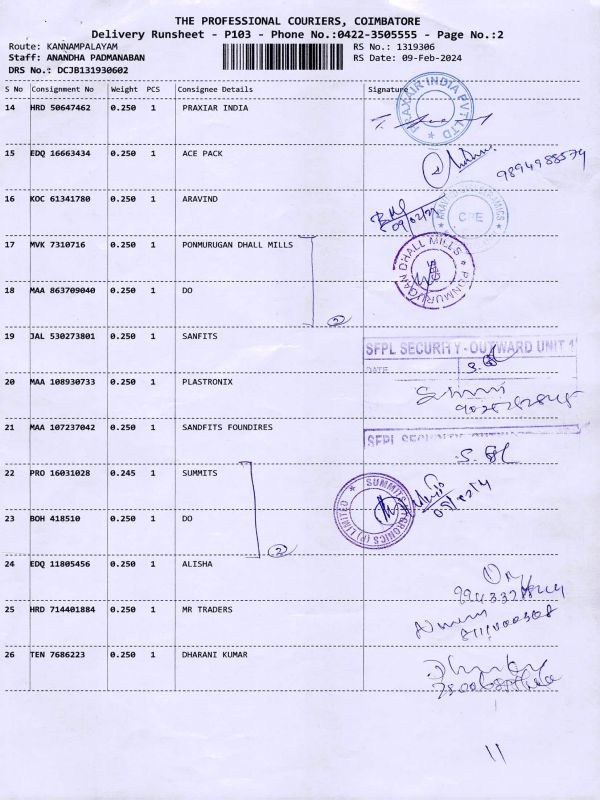 THE PROFESSIONAL COURIERS, COIMBATORE
Delivery Runsheet - P103 - Phone No.:0422-3505555 - Page No.:2
Route: KANNAMPALAYAM RS No.: 1319306
Staff: ANANDHA PADMANABAN RS Date: 09-Feb-2024
DRS No.: DCJB131930602
S No Consignment No Weight PCS Consignee Details Signature
14 HRD 50647462 0.250 1 PRAXIAR INDIA
PRAXAIR INDIA PVT LTD
15 EDQ 16663434 0.250 1 ACE PACK
9894988579
16 KOC 61341780 0.250 1 ARAVIND
09/02/24
CPE
17 MVK 7310716 0.250 1 PONMURUGAN DHALL MILLS
PONMURUGAN DHALL MILLS
18 MAA 863709040 0.250 1 DO
2
19 JAL 530273801 0.250 1 SANFITS
SFPL SECURITY - OUTWARD UNIT 1
DATE
20 MAA 108930733 0.250 1 PLASTRONIX
21 MAA 107237042 0.250 1 SANDFITS FOUNDIRES
SFPL SECURITY
22 PRO 16031028 0.245 1 SUMMITS
23 BOH 418510 0.250 1 DO
2
24 EDQ 11805456 0.250 1 ALISHA
25 HRD 714401884 0.250 1 MR TRADERS
26 TEN 7686223 0.250 1 DHARANI KUMAR
11